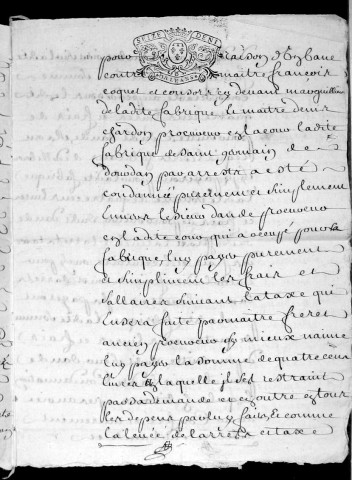 SEIZE DEN
pour raison de
contre maitre françois
coquet et consors cy devant marguilliers
de ladite fabrique le maitre denis
chardon procureur en la cour ladite
fabrique de saint germain de
dourdan par arrest a esté
condamnée purement et simplement
Envers le sieur dan de procureur
en ladite cour qui a occupé pour la
fabrique, luy payer purement
et simplement les frais et
sallaires suivant la taxe qui
En sera faite par maitre freret
ancien procureur sy mieux n'aime
luy payer la somme de quatre cens
Livres a laquelle il s'est restraint
par sa demande et en outre en tous
les depens par luy faits, Et comme
la levée de l'arrest et taxe